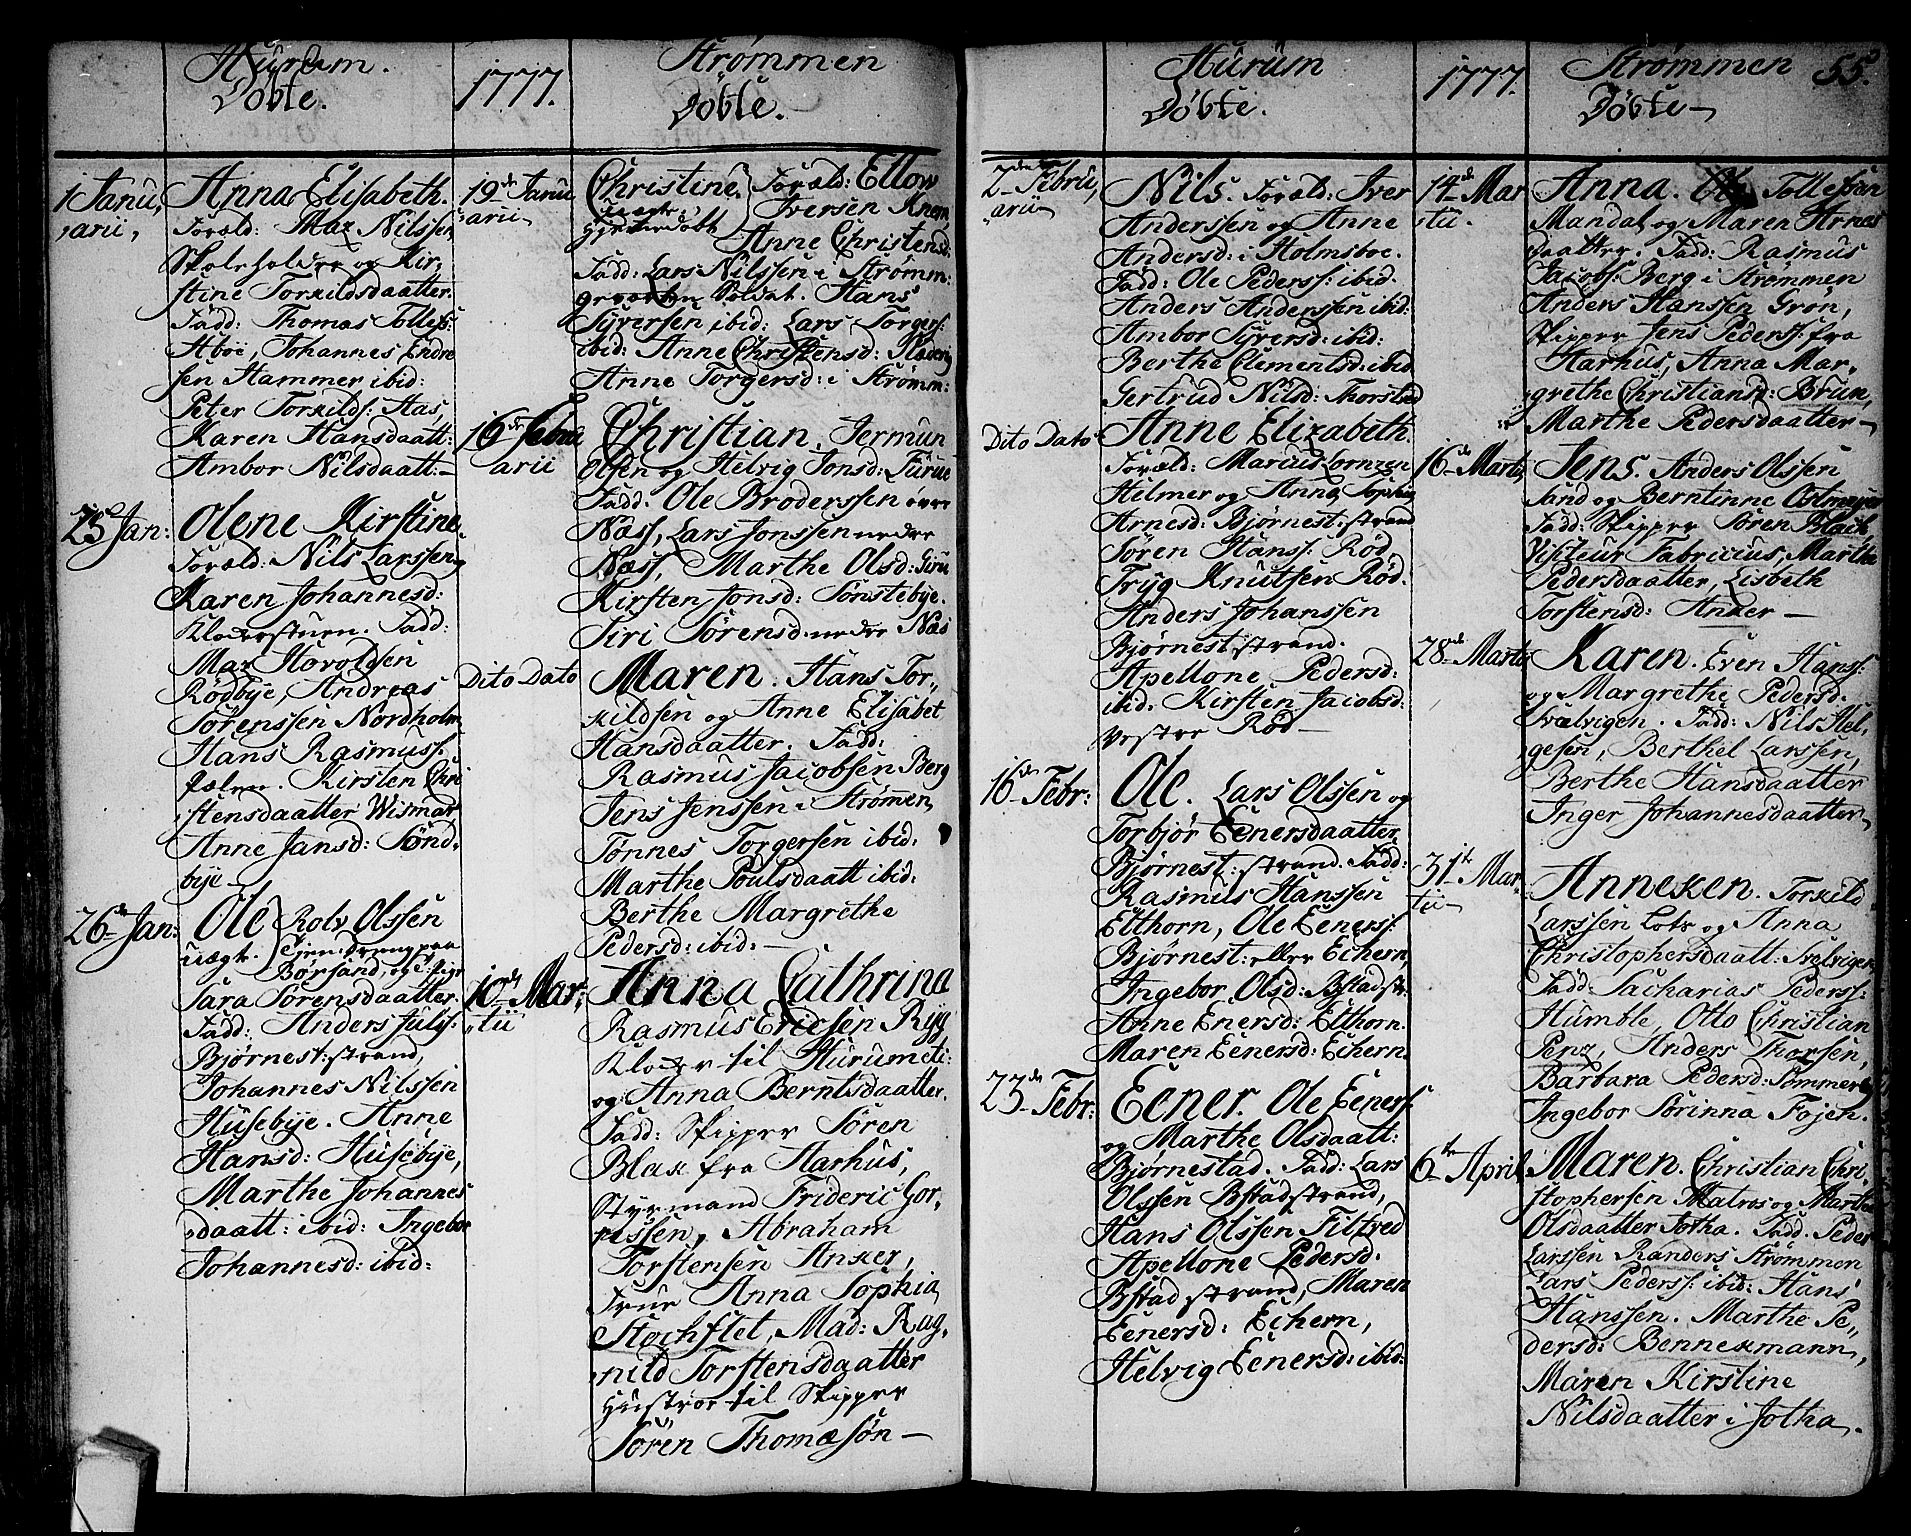 Hurum.
Döbte.
1 Janu,
arii,
Anna Elisabeth.
Foræld: Max Nilssen
Skoleholder og Kir,
stine Torkildsdaatter:
Fadd: Thomas Tollefs:
Aboe, Johannes Endre
sen Hammer ibid:
Peter Torkilds: Aas,
Karen Hansdaatt:
Ambor Nilsdaatt:
25 Jan:
Olene Kirstine
Foræld: Nils Larssen,
Karen Johannesd:
Klokkerstuen. Fadd:
Max Havoldsen
Rödbye, Andreas
Sörenssen Nordholm
Hans Rasmuss:
Kirsten Chri
stensdaatter Wismar
Anne Jansd: Sönd,
bye
26 Jan:
Ole
uægte.
Rolv Olssen
Ejer: dreng paa
Börsand, og Pige
Sara Sörensdaatter.
Fadd: Anders Juliss:
Björnest:strand,
Johannes Nilssen
Husebye. Anne
Hansd: Husebye,
Marthe Johannes
daatt: ibid: Ingebor
Johannesd: ibid:
1777.
Strømmen
Döbte.
19de Janu
arii
Christine.
uægte
Hjemmedöbt
Foræld: Ellow
Iversen Knem
Anne Christensd:
Fadd: Lars Nilssen i Strømm:
gevorben Soldat. Hans
Syversen ibid: Lars Torgers:
ibid: Anne Christensd:
Anne Torgersd: i Strømm:
16de Febru
arii
Christian. Jermun
Olsen og Helvig Jonsd: Furue
Fadd: Ole Broderssen övre
Næss, Lars Jonssen nedre
Næss, Marthe Olsd: Grü
Kirsten Jonsd: Sönstebye.
Siri Sörensd: nedre Næs
Dito Dato
Maren. Hans Tor,
kildsen og Anne Elisabet
Hansdaatter. Fadd:
Rasmus Jacobsen Berg
Jens Jenssen i Strømmen,
Tönnes Torgersen ibid.
Marthe Poulsdaatt ibid:
Berthe Margrethe
Pedersd: ibid:
10de Mar,
tii
Anna Cathrina
Rasmus Ericsen Ryg
Klokker til Hurum etc:
og Anna Berntsdaatter.
Fadd: Skipper Sören
Blax fra Aarhus,
Styrmand Frideric Gor,
rissen, Abraham
Torstensen Anker,
Frue Anna Sophia
Stochflet, Mad: Rag,
nild Torstensdaatter
Hustroe til Skipper
Sören Thomæsön
Hurum
Döbte.
2den Febru,
arii
Nils. Foræld: Iver
Anderssen og Anne
Andersd: i Holmsboe.
Fadd: Ole Peders: ibid.
Anders Anderssen ibid:
Ambor Syversd: ibid:
Berthe Clementsd: ibid
Gertrud Nilsd: Thorstad
Dito Dato
Anne Elizabeth.
Foræld: Marcus Lornzen
Helmer og Anna Sophia
Arnesd: Björnest:strand
Sören Hanss: Röd,
Tryg Knutsen Röd.
Anders Johanssen
Björnest strand.
Apellone Pedersd:
ibid. Kirsten Jacobsd:
vestre Röd
16de Febr:
Ole. Lars Olssen og
Torbjör Eenersdaatter
Björnest:strand. Fadd:
Rasmus Hanssen
Elthorn, Ole Eeners:
Björnest: eller Echern
Ingebor Olsd: Bstadstr:
Anne Enersd: Elthorn.
Maren Eenersd: Echern.
23de Febr:
Eener. Ole Eeners:
og Marthe Olsdaatt:
Björnestad. Fadd: Lars
Olssen Bstadstrand,
Hans Olssen Filtved
Apellone Pedersd:
Bstad strand, Maren
Eenersd: Echern,
Helvig Eenersd: ibid:
1777.
Strømmen
Döbte
55.
14de Mar
tii.
Anna. Tollefsen
Mandal og Maren Arnes
daatter. Fadd: Rasmus
Jacobs: Berg i Strømmen
Anders Hanssen Gron,
Skipper Jens Peders: fra
Aarhus, Anna Mar,
grethe Christiansd: Brun,
Marthe Pedersdaatter
16de Martii
Jens. Anders Olssen
Sand og Berntinne
Fadd: Skipper Sören Black
Visiteur Fabricius, Martha
Pedersdaatter, Lisbeth
Torstensd: Anker
28de Martii
Karen. Even Hans:
og Margrethe Pedersd:
Svælvigen. Fadd: Nils Hel,
gesen, Berthel Larssen,
Berthe Hansdaatter
Inger Johannesdaatter
31te Mar
tii
Anneken. Torkild
Larssen Lots og Anna
Christophersdaatt: Svelvigen
Fadd: Zacharias Peders:
Humble, Otto Christian
Penz, Anders Thorsen,
Barbara Pedersd: Sommer
Ingebor Sorinna Fojen.
6te April,
Maren. Christian Chri,
stophersen Matros og Marthe
Olsdaatter Jotha. Fadd: Peder
Larssen Randers Strømmen
Lars Peders: ibid: Hans
Hanssen. Marthe Pe,
dersd: Bennekmann,
Maren Kirstine
Nilsdaatter i Jotha.